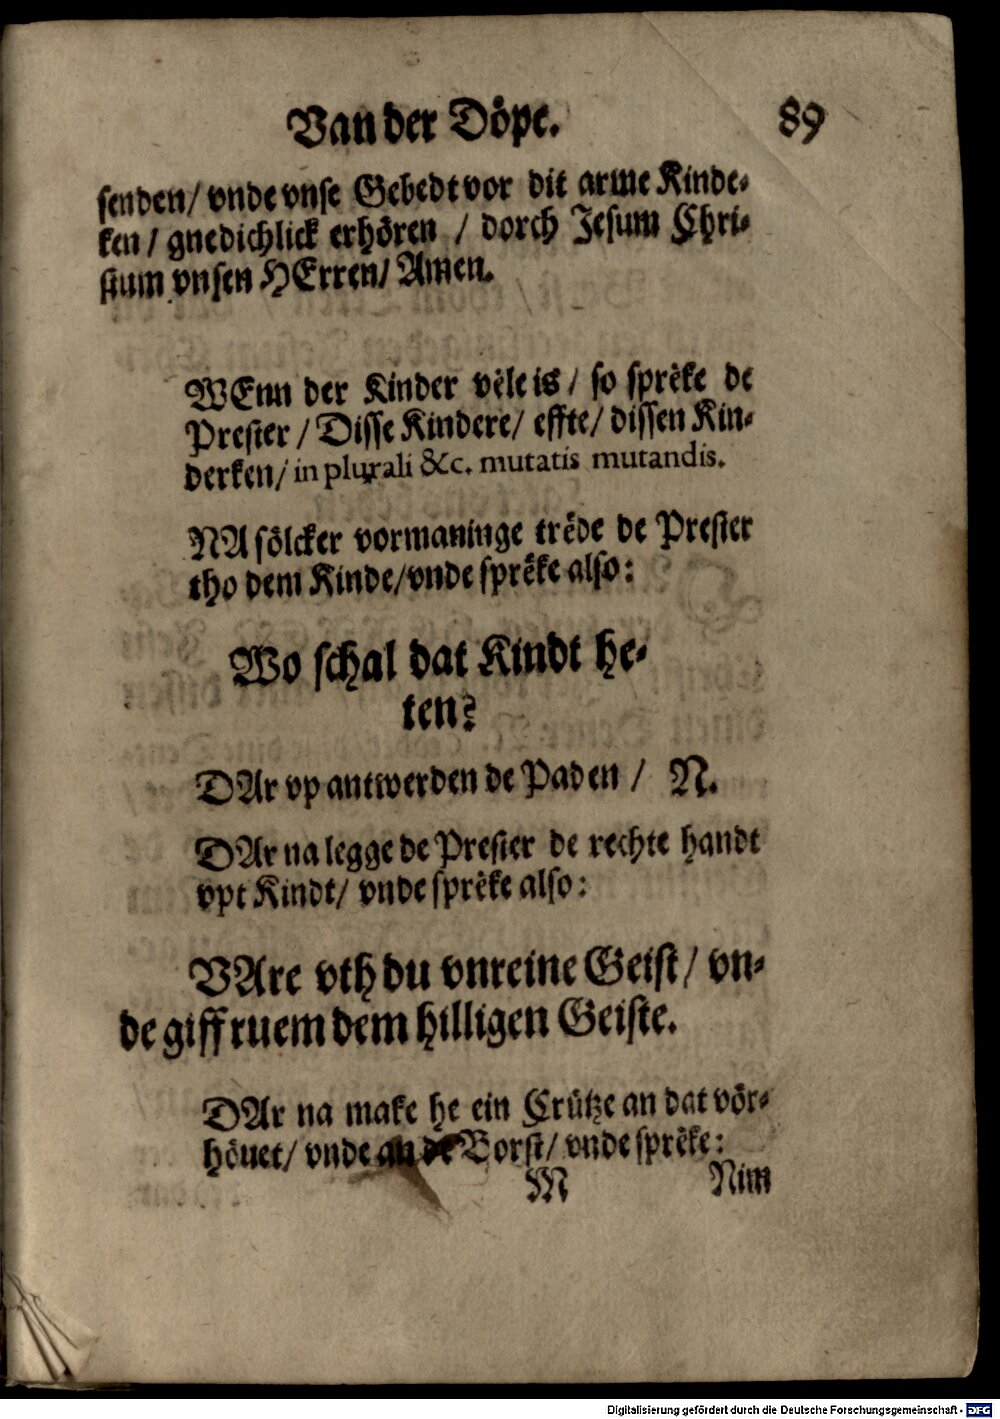 Van der Döpe. 89
senden/ vnde vnse Gebedt vor dit arme Kinde-
ken/ gnedichlick erhören / dorch Jesum Chri-
stum vnsen HErren/ Amen.
WEnn der Kinder vële is/ so sprëke de
Prester/ Disse Kindere/ effte/ dissen Kin-
derken/ in plurali &c. mutatis mutandis.
NA sölcker vormaninge trëde de Prester
tho dem Kinde/ vnde sprëke also:
Wo schal dat Kindt he-
ten?
DAr vp antwerden de Paden/ N.
DAr na legge de Prester de rechte handt
vpt Kindt/ vnde sprëke also:
VAre vth du vnreine Geist/ vn-
de giff ruem dem hilligen Geiste.
DAr na make he ein Crütze an dat vör-
höuet/ vnde an de Borst/ vnde sprëke:
M Nim
Digitalisierung gefördert durch die Deutsche Forschungsgemeinschaft - DFG